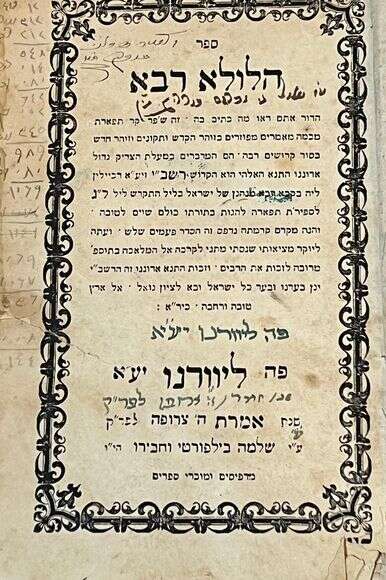 ספר
הלולא רבא
הדור אתם ראו מה כתיב בה · זה ש'פר יקר תפארת
מכמה מאמרים מפוזרים בזוהר הקדש ותקונים וזוהר חדש
בסוד קדושים רבה · הם המדברים במעלת הצדיק גדול
אדוננו התנא האלהי הוא הקדוש רשב״י זיע״א דכיילין
ליה בקבא רבא מנהגן של ישראל בליל התקדש ליל ל״ג
לספירת תפארה להגות בתורתו כולם שוים לטובה ·
והנה מקדם קדמתה נדפס זה הסדר פעמים שלש · ועתה
ליוקר מציאותו שנסתי מתני לקרבה אל המלאכה בתוספ'
מרובה לזכות את הרבים · וזכות התנא אדוננו זה הרשב״י
יגן בעדנו ובעד כל ישראל ובא לציון גואל · אל ארץ
טובה ורחבה · כיר״א :
פה ליוורנו יע״א
פה ליוורנו יע״א
שנת אמרת ה' צרופה לפ״ק
ע״י שלמה בילפורטי וחבירו הי״ו
מדפיסים ומוכרי ספרים